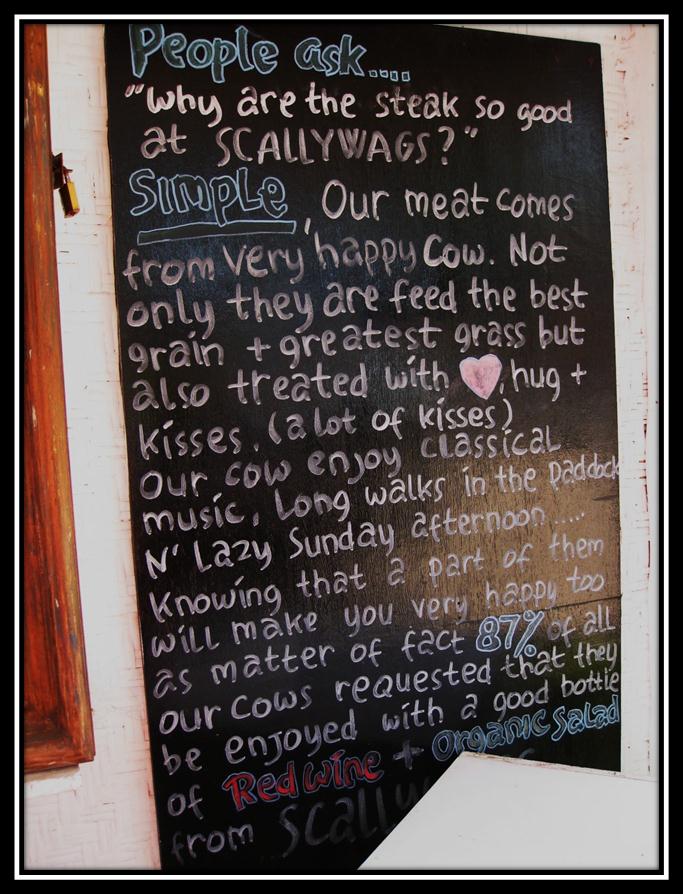 People ask....
"Why are the steak so good
at SCALLYWAGS?"
SIMPLE, Our meat comes
from very happy Cow. Not
only they are feed the best
grain + greatest grass but
also treated with ♥, hug +
kisses. (a lot of kisses)
our cow enjoy classical
music, Long walks in the paddock
N' Lazy Sunday afternoon.....
Knowing that a part of them
will make you very happy too
as matter of fact 87% of all
our cows requested that they
be enjoyed with a good bottle
of Red wine + Organic Salad
from